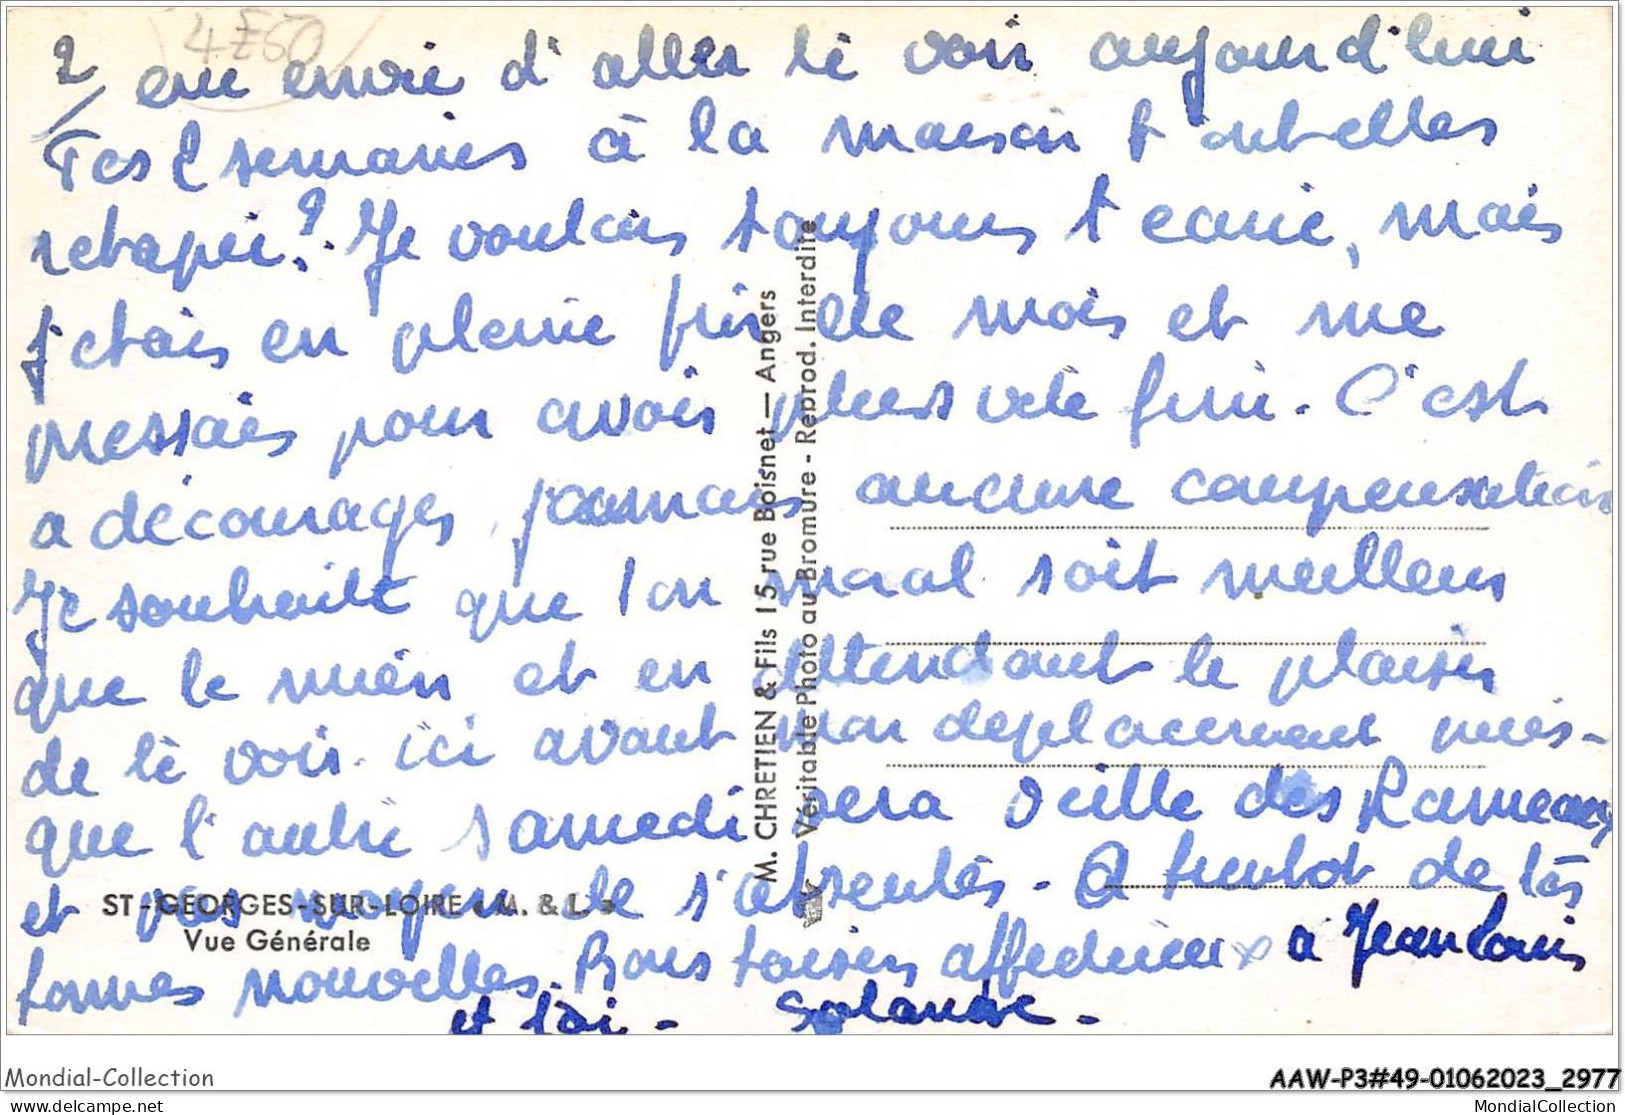 4E50
2/ eu envie d'aller te voir aujourd'hui
Tes 2 semaines à la maison t'ont-elles
retapée ? Je voulais toujours t'écrire, mais
j'étais en pleine fin de mois et me
pressais pour avoir plus vite fini. C'est
a décourager, jamais aucune compensation
Je souhaite que ton moral soit meilleur
que le mien et en attendant le plaisir
de te voir ici avant mon déplacement puis-
que l'autre samedi sera veille des Rameaux
et pas moyen de s'absenter. A bientôt de tes
bonnes nouvelles. Bons baisers affectueux à Jean Louis
et toi - Solange -
ST-GEORGES-SUR-LOIRE « M. & L. »
Vue Générale
M. CHRETIEN & Fils 15, rue Boisnet — Angers
Véritable Photo au Bromure - Reprod. Interdite
Mondial-Collection
AAW-P3#49-01062023_2977
delcampe.net
MondialCollection